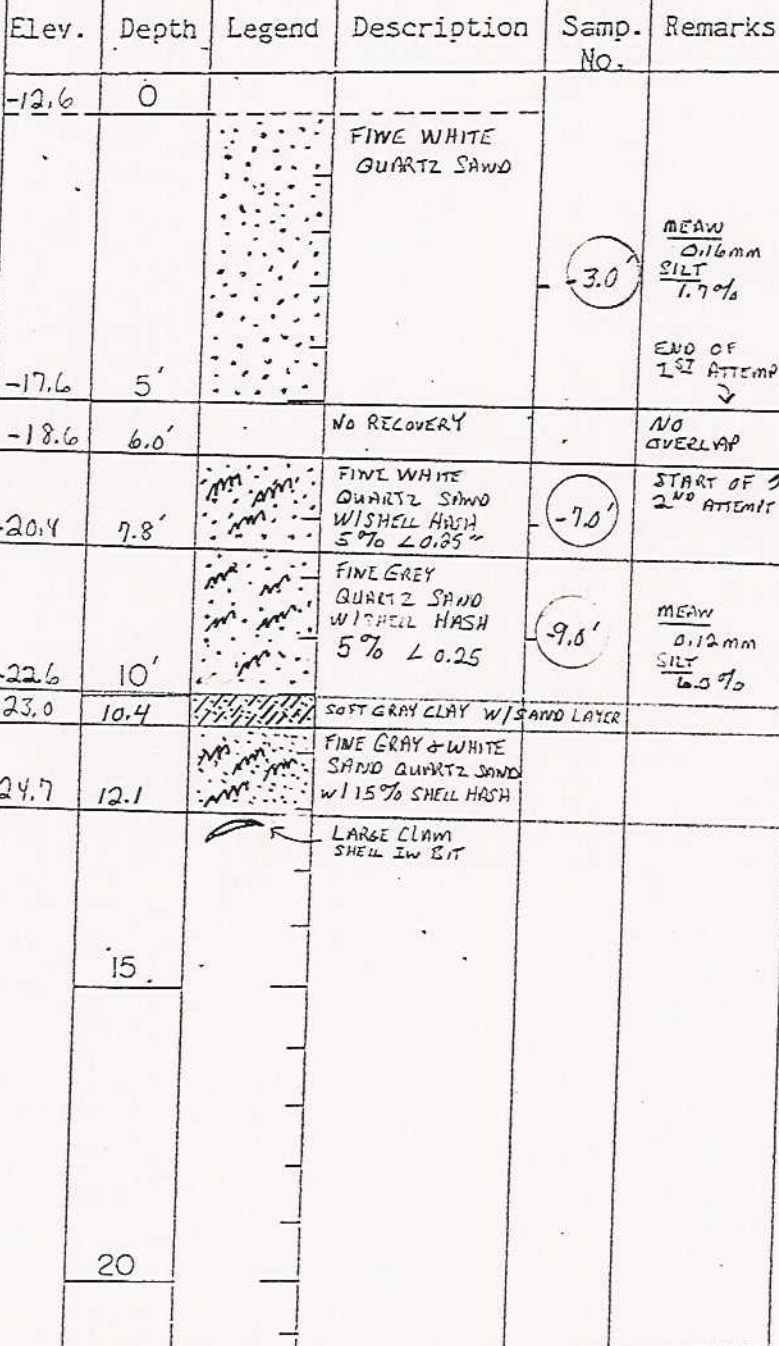 Elev. Depth Legend Description Samp. No. Remarks
-12.6 0
FINE WHITE
QUARTZ SAND
-3.0'
MEAN
0.16mm
SILT
1.7%
END OF
1ST ATTEMP
-17.6 5'
NO RECOVERY
NO
OVERLAP
-18.6 6.0'
FINE WHITE
QUARTZ SAND
W/SHELL HASH
5% < 0.25"
-7.0'
START OF
2ND ATTEMPT
-20.4 7.8'
FINE GREY
QUARTZ SAND
W/SHELL HASH
5% < 0.25
-9.0'
MEAN
0.12mm
SILT
-22.6 10'
23.0 10.4 SOFT GRAY CLAY W/SAND LAYER
FINE GRAY & WHITE
SAND QUARTZ SAND
W/15% SHELL HASH
24.7 12.1
LARGE CLAM
SHELL IN BIT
15
20